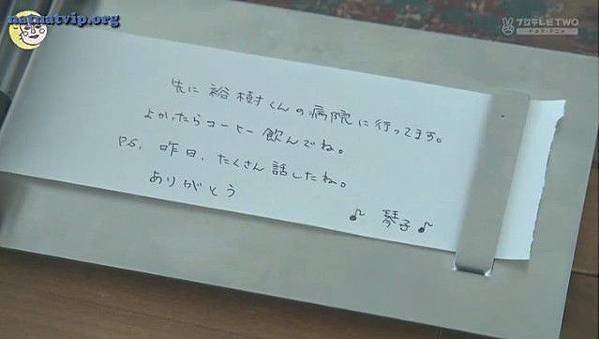 natnatvip.org
フジテレビTWO
ドラマ・アニメ
先に 裕樹くんの病院に行ってます。
よかったらコーヒー飲んでね。
P.S. 昨日、たくさん話したね。
ありがとう
♪ 琴子 ♪